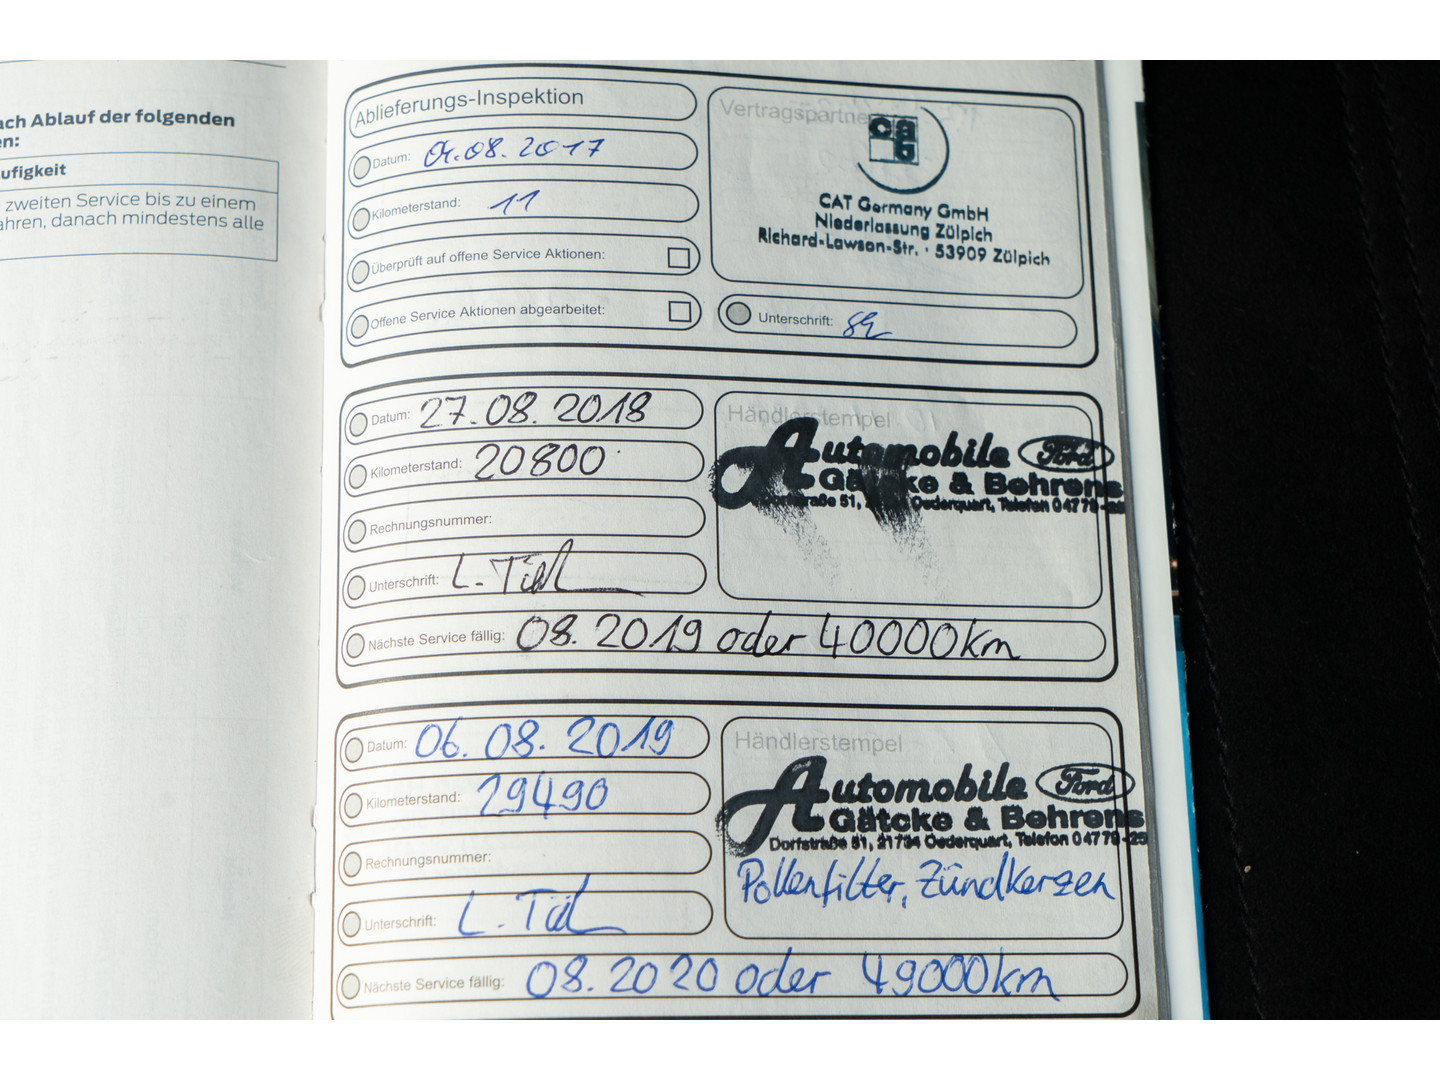 ach Ablauf der folgenden
en:
ufigkeit
zweiten Service bis zu einem
ahren, danach mindestens alle
Ablieferungs-Inspektion
Datum: 01.08.2017
Kilometerstand: 11
Überprüft auf offene Service Aktionen:
Offene Service Aktionen abgearbeitet:
Vertragspartner
CAT Germany GmbH
Niederlassung Zülpich
Richard-Lawson-Str. · 53909 Zülpich
Unterschrift:
Datum: 27.08.2018
Kilometerstand: 20800
Rechnungsnummer:
Unterschrift:
Händlerstempel
Automobile Ford
Gätcke & Behrens
Dorfstraße 51, Oederquart, Telefon 04779-25
Nächste Service fällig: 08.2019 oder 40000km
Datum: 06.08.2019
Kilometerstand: 29490
Rechnungsnummer:
Unterschrift:
Händlerstempel
Automobile Ford
Gätcke & Behrens
Dorfstraße 51, 21734 Oederquart, Telefon 04779-25
Pollenfilter, Zündkerzen
Nächste Service fällig: 08.2020 oder 49000km